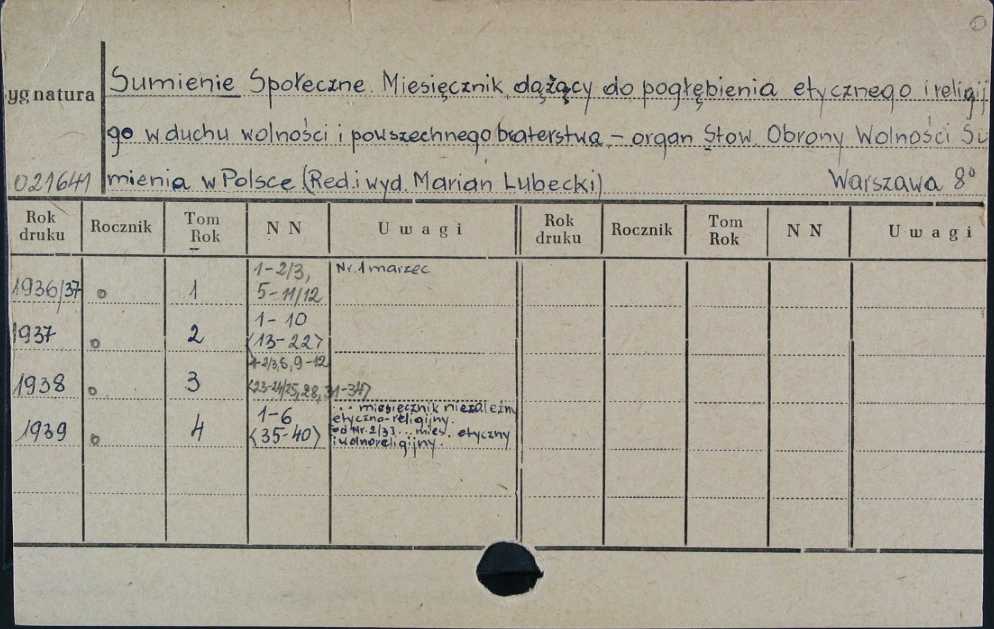 Sumienie Społeczne. Miesięcznik, dążący do pogłębienia etycznego i religij
ygnatura
go w duchu wolności i powszechnego braterstwa, – organ Stow. Obrony Wolności Su
021641 mienia w Polsce (Red. i wyd. Marian Lubecki) Warszawa 8°
Rok druku Rocznik Tom Rok N N Uwagi Rok druku Rocznik Tom Rok N N Uwagi
1936/37 o 1 1-2/3, 5-11/12 Nr. 1 marzec
1937 o 2 1-10 (13-22)
1938 o 3 1-2/3, 6, 9-12 (23-24/25, 28, 31-34)
1939 o 4 1-6 (35-40) ... miesięcznik niezależny etyczno-religijny. od Nr. 2/37... mies. etyczny i wolnoreligijny.